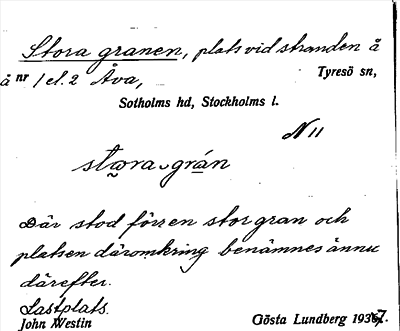 Stora granen, plats vid stranden å
å nr 1 el. 2 Åva, Tyresö sn,
Sotholms hd, Stockholms l.
N 11
stωra‿grán
Där stod förr en stor gran och
platsen däromkring benämnes ännu
därefter.
Lastplats.
John Westin Gösta Lundberg 1937.